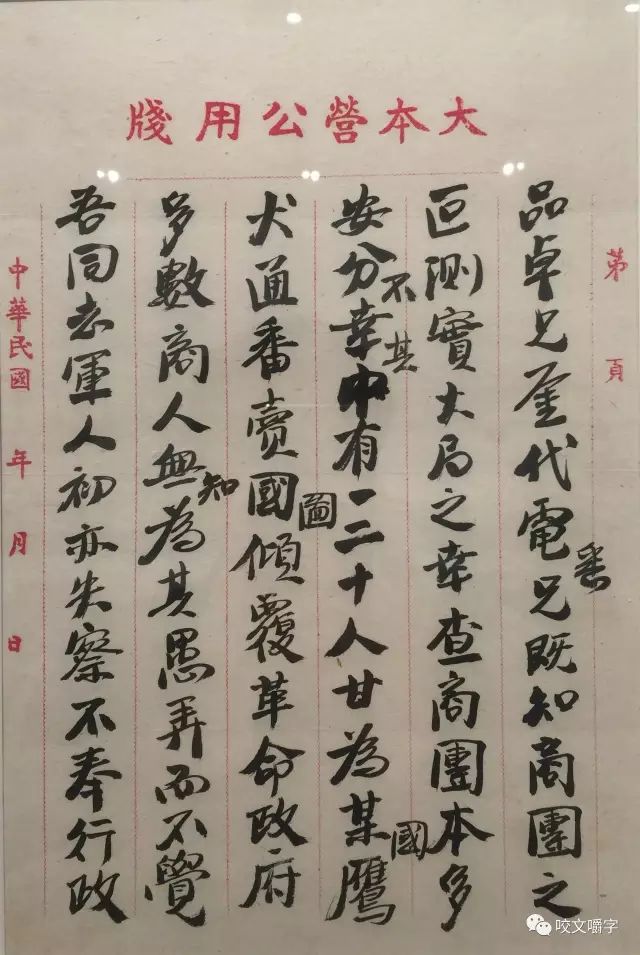 大本營公用牋
第 頁
品卓兄代電悉兄既知商團之
叵測實大局之幸查商團本多
安分不幸其中有一二十人甘為某國鷹
犬通番賣國圖傾覆革命政府
多數商人無知為其愚弄而不覺
吾同志軍人初亦失察不奉行政
中華民國 年 月 日
咬文嚼字